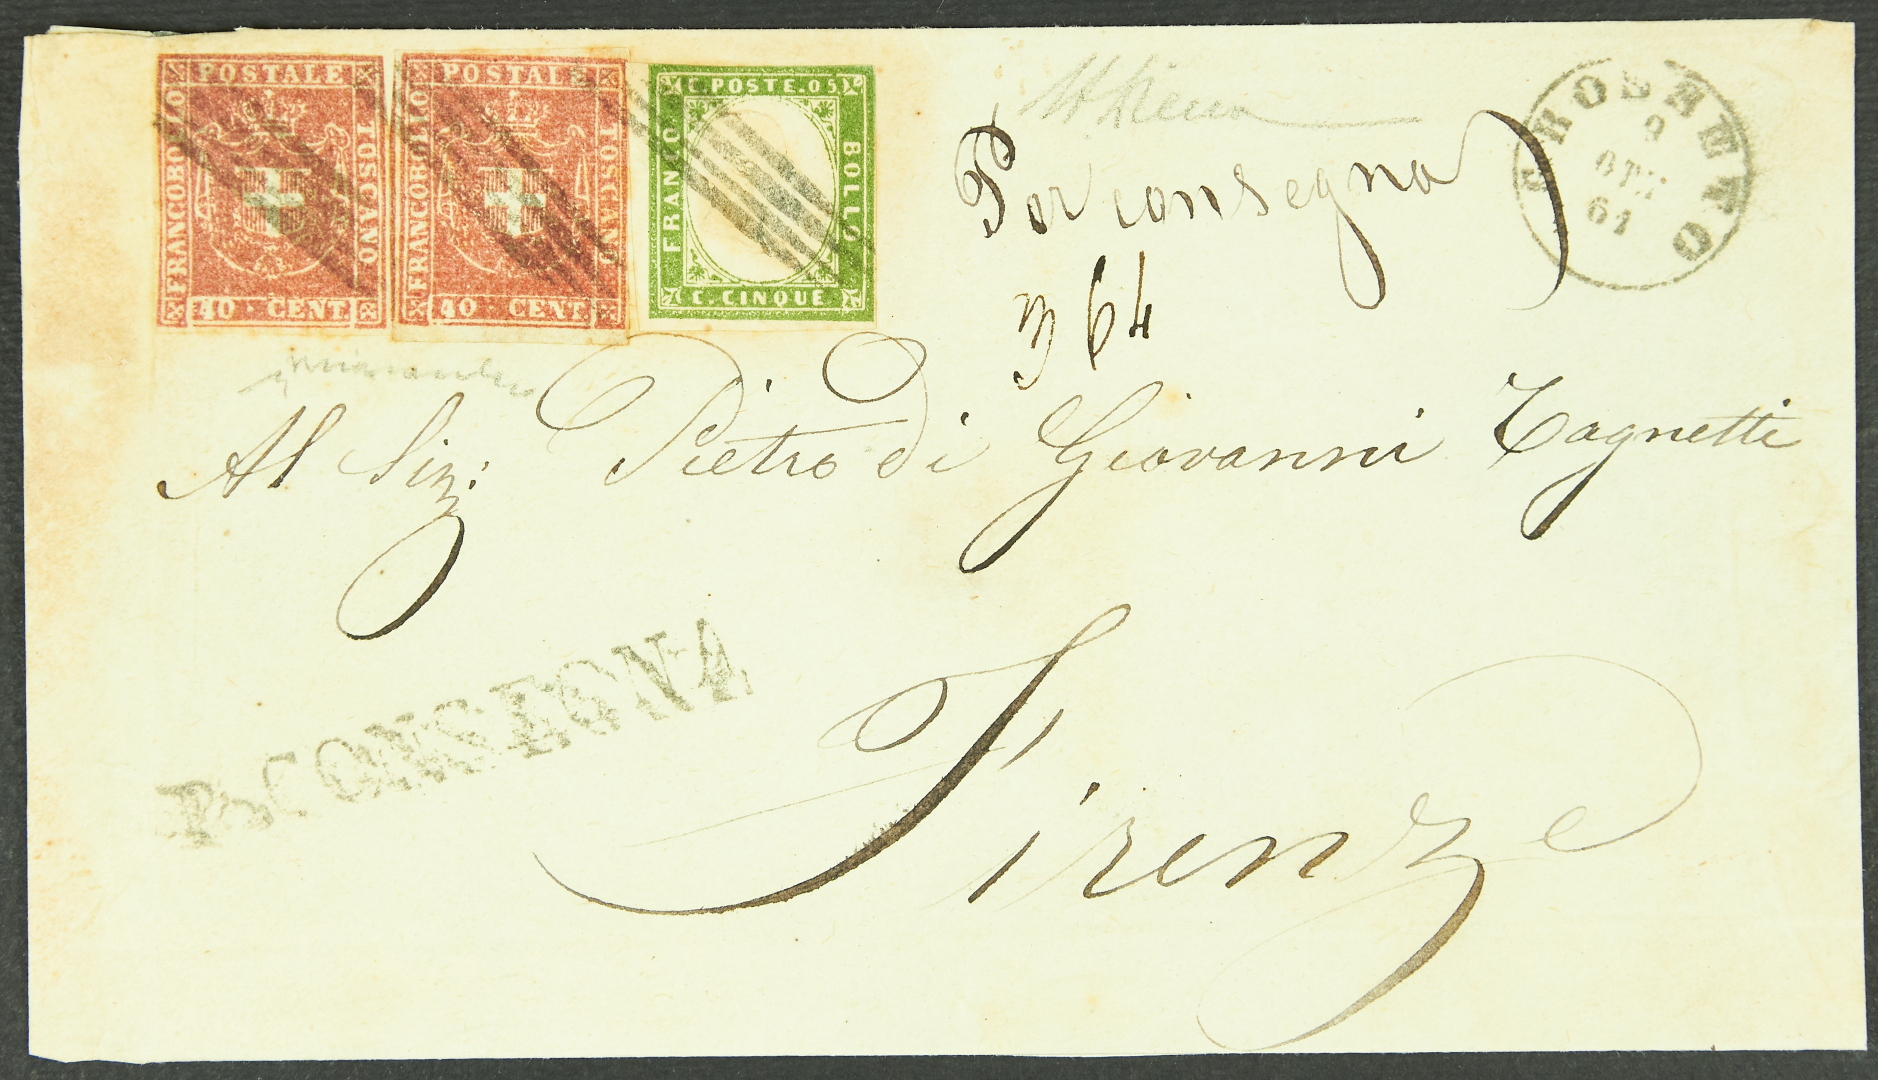 POSTALE
FRANCOBOLLO
TOSCANO
40 · CENT
POSTALE
FRANCOBOLLO
TOSCANO
40 CENT
C. POSTE. 05
FRANCO
BOLLO
C. CINQUE
GROSSETO
9
OTT
61
Per consegna
364
Al Sig: Pietro di Giovanni Tagnetti
P. CONSEGNA
Firenze